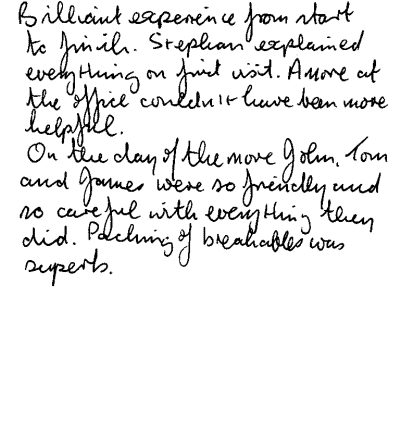 Brilliant experience from start
to finish. Stephan explained
everything on first visit. Anone at
the office couldn't have been more
helpful.
On the day of the move John, Tom
and James were so friendly and
so careful with everything they
did. Packing of breakables was
superb.